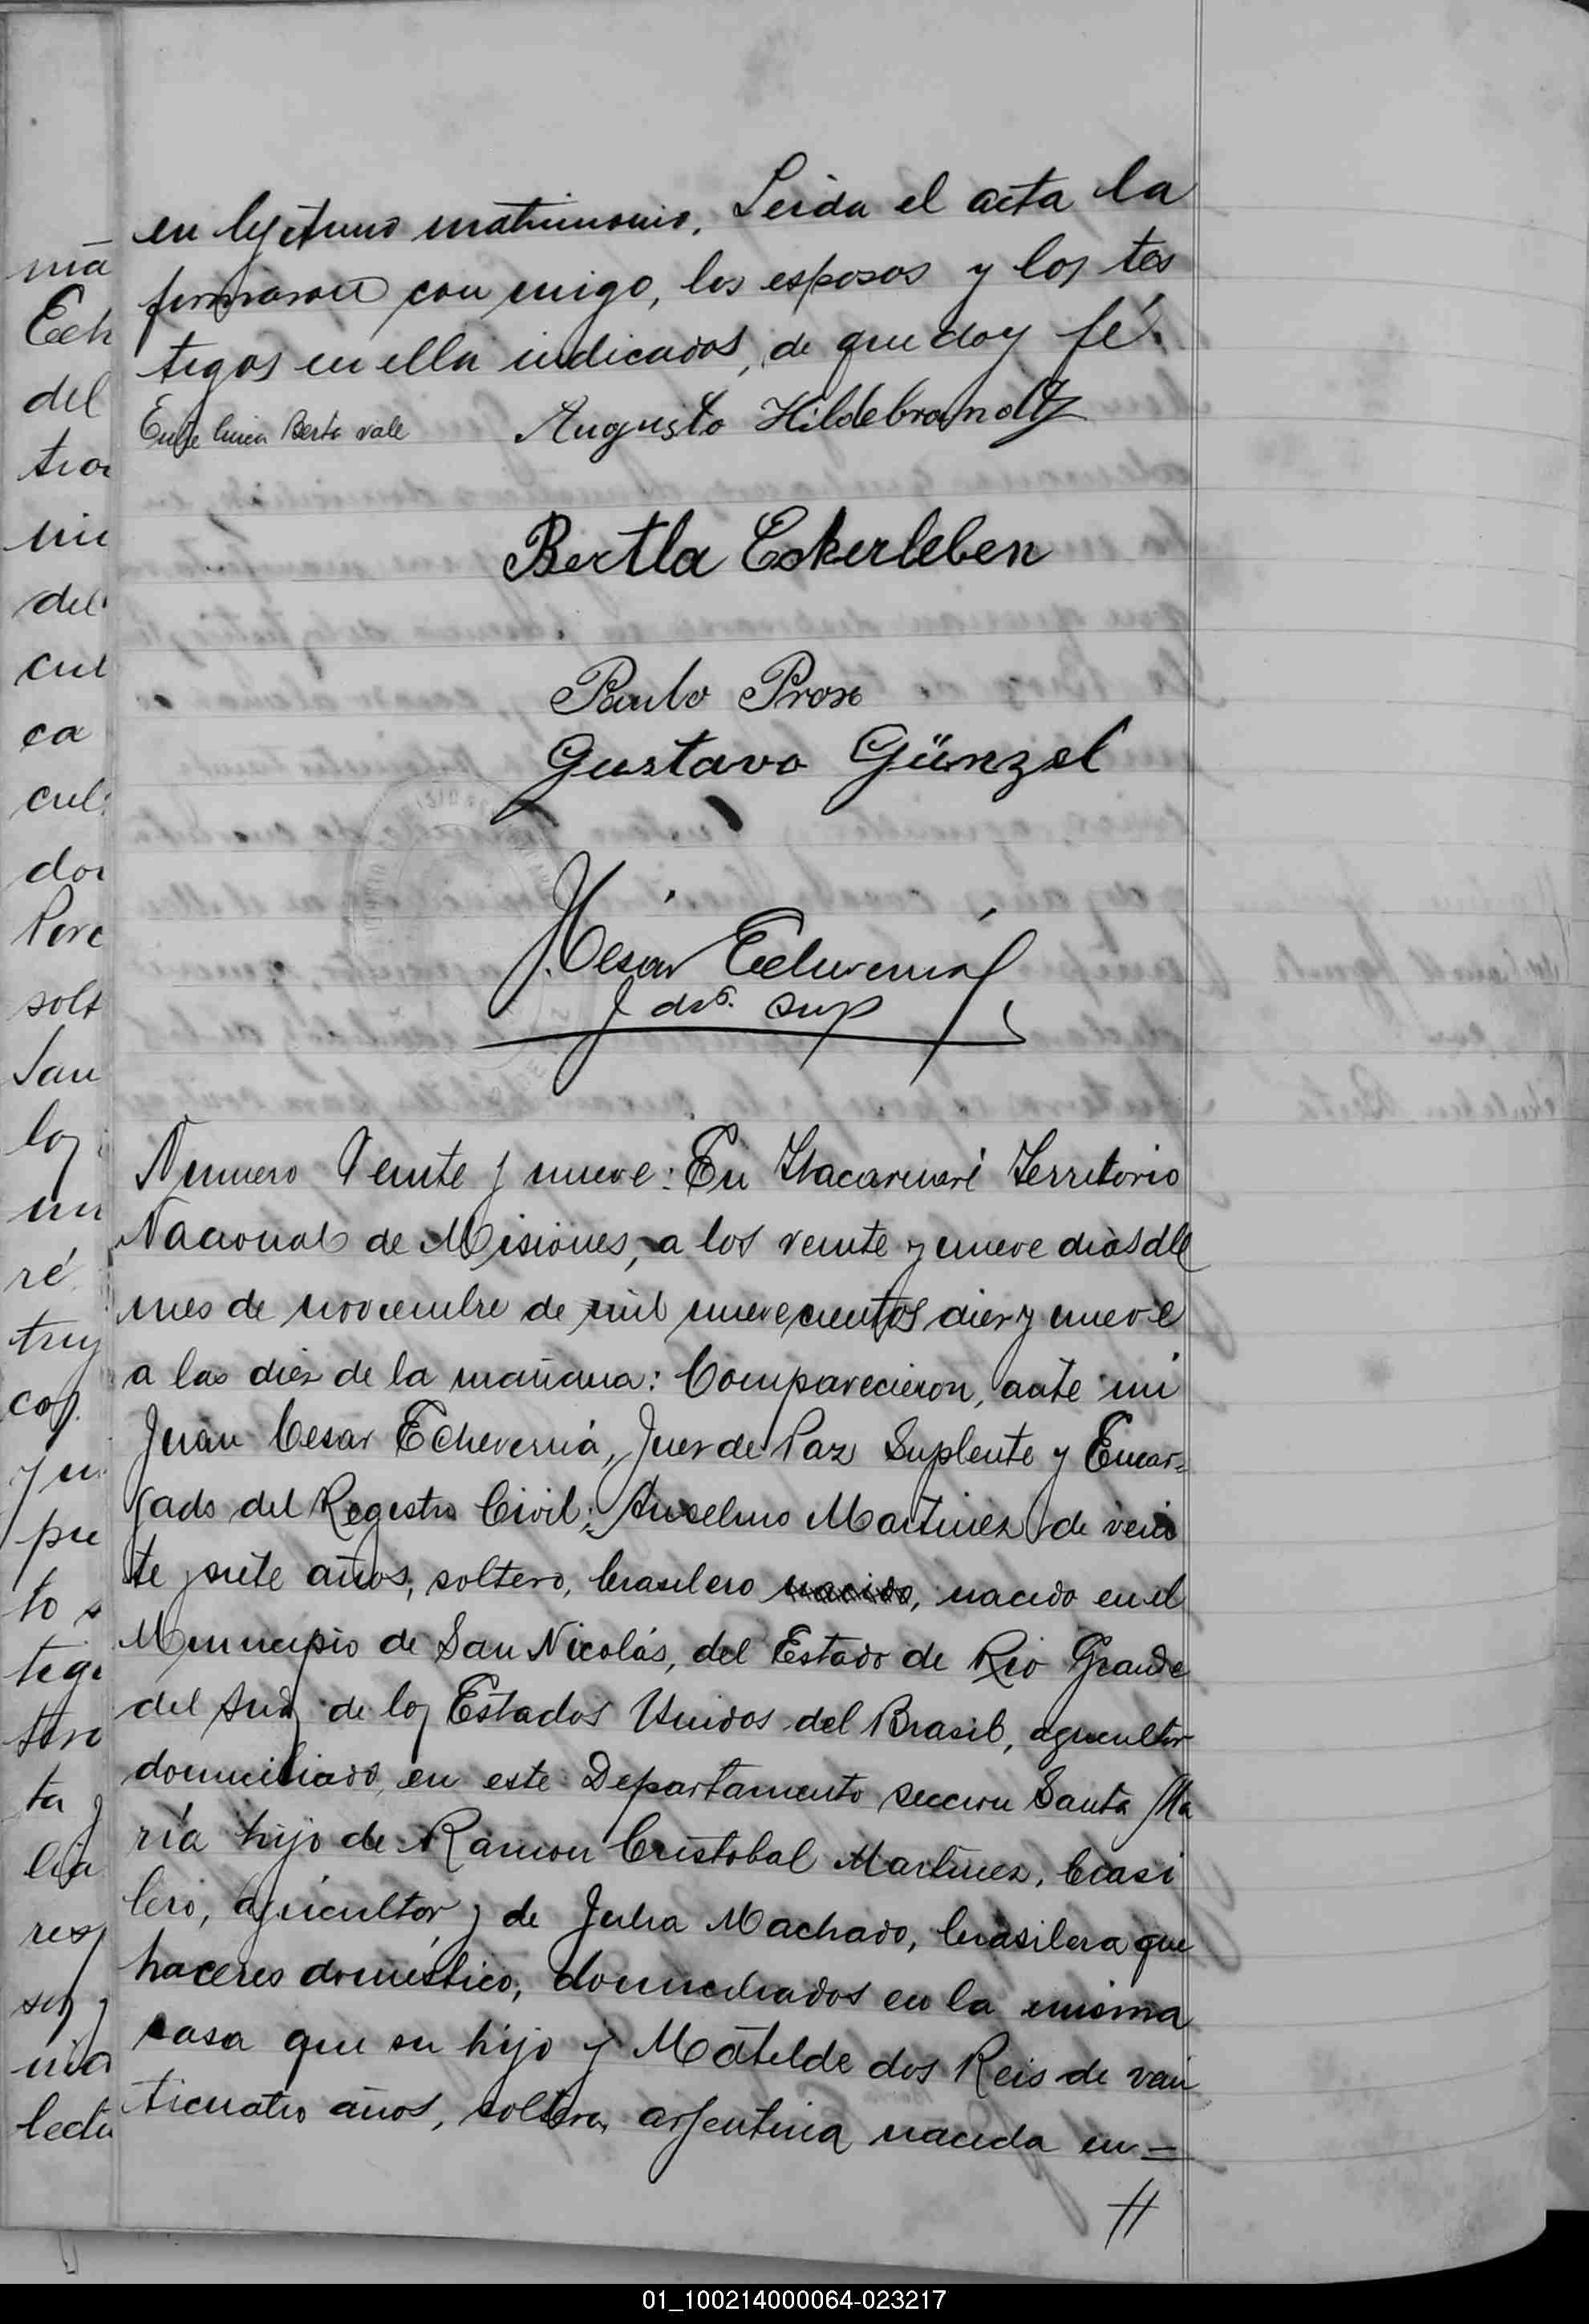 en lejitimo matrimonio. Leida el acta la
firmaron con migo, los esposos y los tes
tigos en ella indicados, de que doy fé.
Entre linea Berta vale Augusto Hildebrandtz
Bertla Eckerleben
Paulo
Gustavo Günzel
J. Cesar Echeverria
sup
Numero Veinte y nueve: En Itacaruaré Territorio
Nacional de Misiones, a los veinte y nueve dias del
mes de noviembre de mil nuevecientos diez y nueve
a las diez de la mañana: Comparecieron, ante mi
Juan Cesar Echeverria, Juez de Paz Suplente y Encar=
gado del Registro Civil; Anselmo Martinez de vein
te y siete años, soltero, brasilero nacido, nacido en el
Municipio de San Nicolás, del Estado de Rio Grande
del Sud, de los Estados Unidos del Brasil, agricultor
domiciliado, en este Departamento seccion Santa Ma
ría hijo de Ramon Cristobal Martinez, brasi
lero, agricultor, y de Julia Machado, brasilera que
haceres doméstico, domiciliados en la misma
casa que su hijo y Matilde dos Reis de vein
ticuatro años, soltera, argentina nacida en=
//
ma
Ech
del
mi
del
cul
ca
cul
dor
solt
San
los
un
ré
tuy
cos.
pu
to
tigo
ta y
lia
res
lectu
01_100214000064-023217